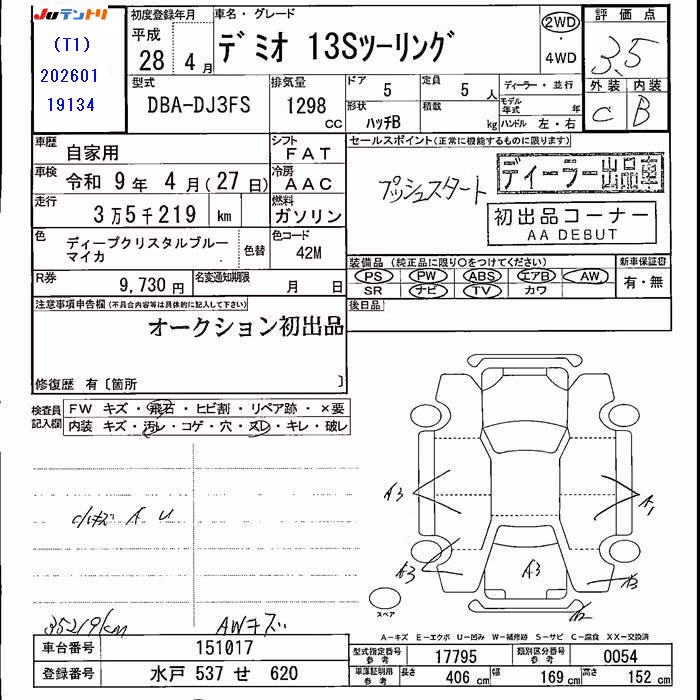 JUテントリ
(T1)
202601
19134
初度登録年月
平成
28 4月
車名・グレード
デミオ 13Sツーリング
2WD
・
4WD
評価点
3.5
外装 内装
C B
型式
DBA-DJ3FS
排気量
1298
cc
ドア
5
定員
5人
形状
ハッチB
積載
kg
ディーラー・並行
モデル年式 年
ハンドル 左・右
車歴
自家用
シフト
FAT
車検
令和 9年 4月(27日)
冷房
AAC
走行
3万5千219 km
燃料
ガソリン
色
ディープクリスタルブルーマイカ
色替
色コード
42M
R券
9,730円
名変通知期限
月 日
セールスポイント(正常に機能するものに限ります)
プッシュスタート
ディーラー出品車
初出品コーナー
AA DEBUT
装備品(純正品に限り○をつけてください)
PS PW ABS エアB AW
SR ナビ TV カワ
新車保証書
有・無
後日品
注意事項申告欄(不具合内容等は具体的に記入して下さい)
オークション初出品
修復歴 有〔箇所 〕
検査員記入欄
FW キズ・飛石・ヒビ割・リペア跡・×要
内装 キズ・汚レ・コゲ・穴・スレ・キレ・破レ
A U
35219km
AWキズ
A3
A1
A3
A3
A3
A2
スペア
A-キズ E-エクボ U-凹み W-補修跡 S-サビ C-腐食 XX-交換済
車台番号
151017
登録番号
水戸 537 せ 620
型式指定番号
参考
17795
類別区分番号
参考
0054
車庫証明用
参考
長さ 406 cm
幅 169 cm
高さ 152 cm